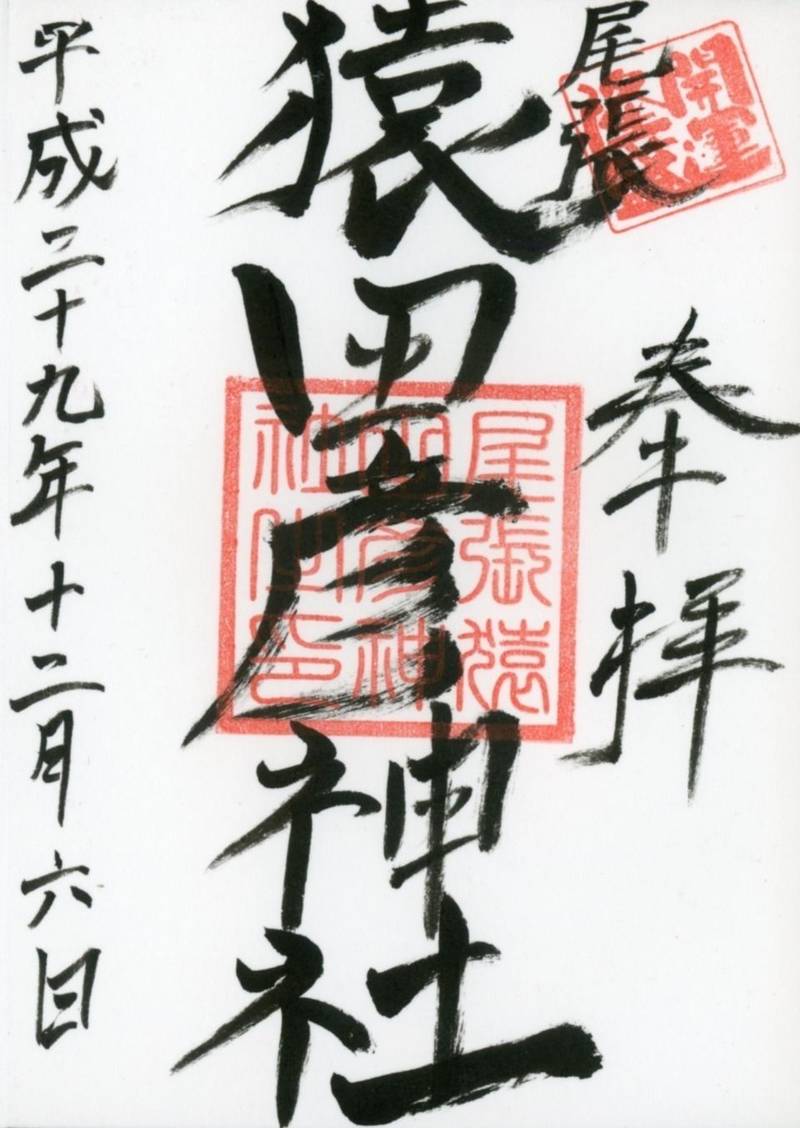 尾張
開運
奉拝
猿田彦神社
尾張猿
田彦神
社之印
平成二十九年十二月六日